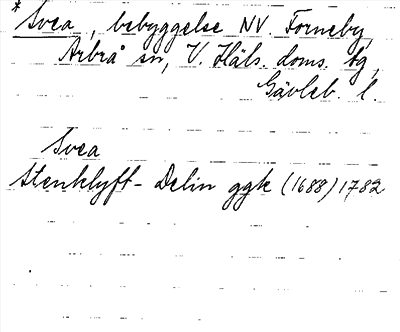 *Svea, bebyggelse NV Forneby,
Arbrå sn, V. Häls. doms. sg,
Gävleb. l.
Svea
Stenklyft - Delin ggk (1688) 1782